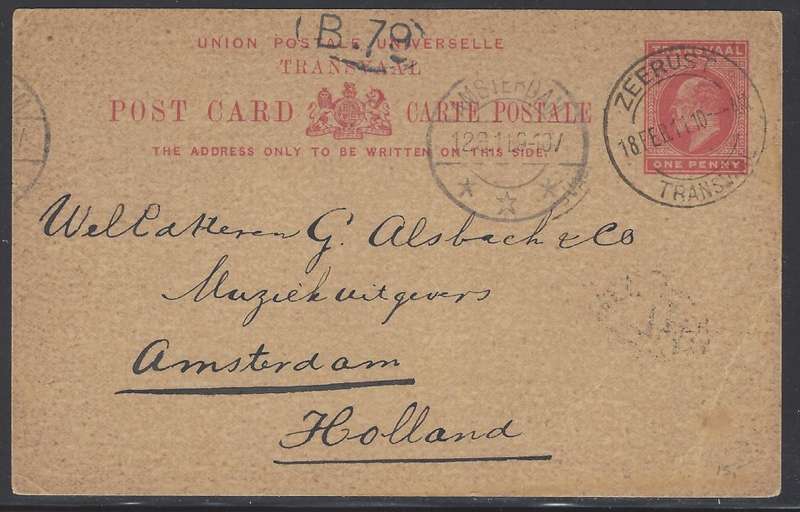 (B.79)
UNION POSTALE UNIVERSELLE
TRANSVAAL
POST CARD CARTE POSTALE
THE ADDRESS ONLY TO BE WRITTEN ON THIS SIDE.
TRANSVAAL
ONE PENNY
ZEERUST
18 FEB.11.10
TRANSVAAL
AMSTERDAM
Wel Ed Heeren G. Alsbach & Co
Muziekuitgevers
Amsterdam
Holland
15,-